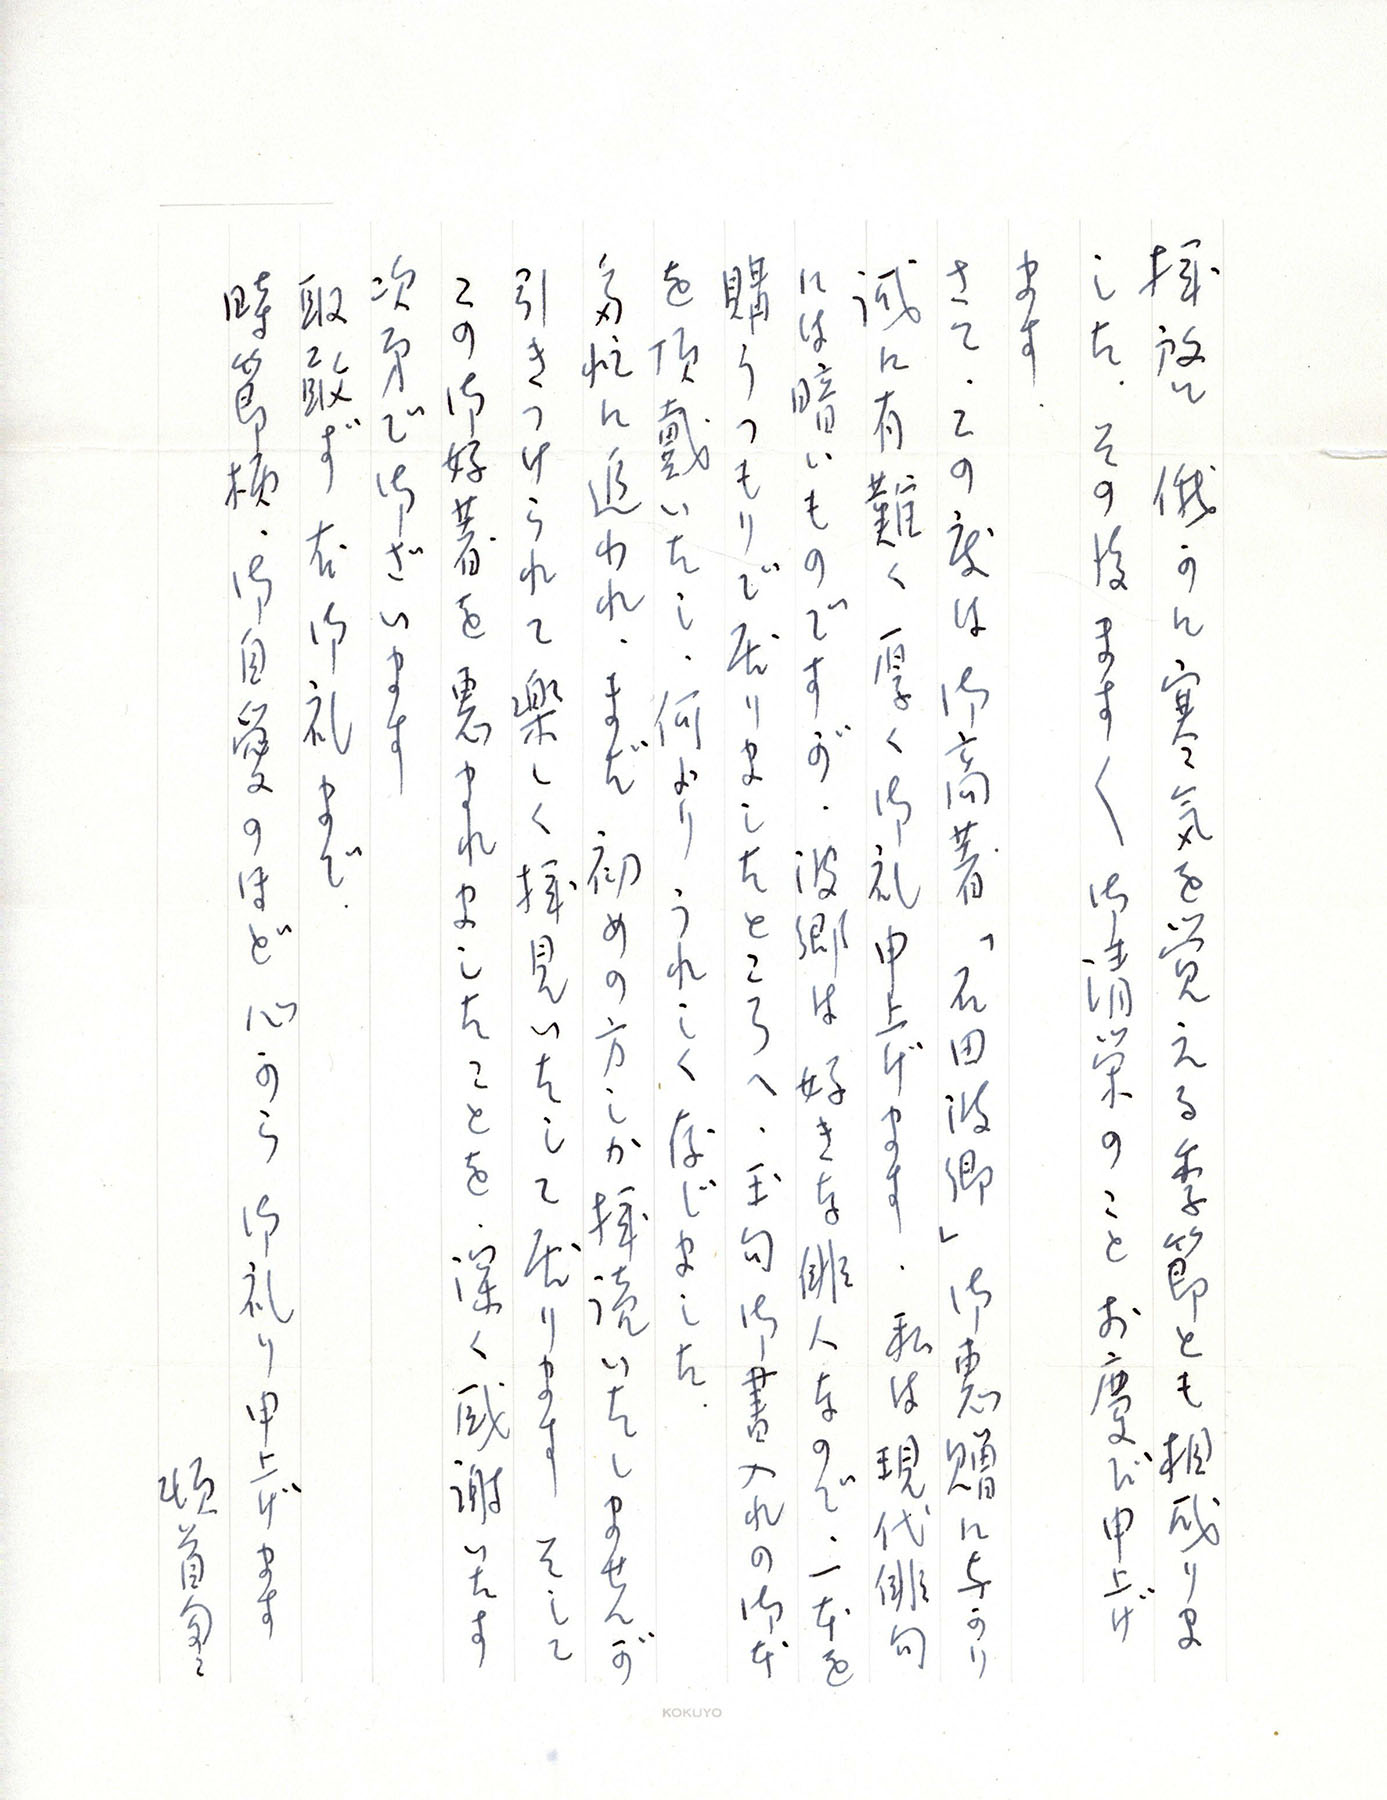 拝啓 俄かに寒気を覚える季節とも相成りま
した。その後ますく御清栄のこと お慶び申上げ
ます。
さて、この度は御高著「石田波郷」御恵贈に与かり
誠に有難く厚く御礼申上げます。私は現代俳句
には暗いものですが、波郷は好きな俳人なので、一本を
購うつもりで居りましたところへ、玉句御書入れの御本
を頂戴いたし、何よりうれしく存じました。
多忙に追われ、まだ初めの方しか拝読いたしませんが
引きつけられて楽しく拝見いたして居ります そして
この御好著を恵まれましたことを、深く感謝いたす
次第で御ざいます
取敢ず右御礼まで。
時節柄、御自愛のほど 心から 御礼り申上げます
頓首
KOKUYO